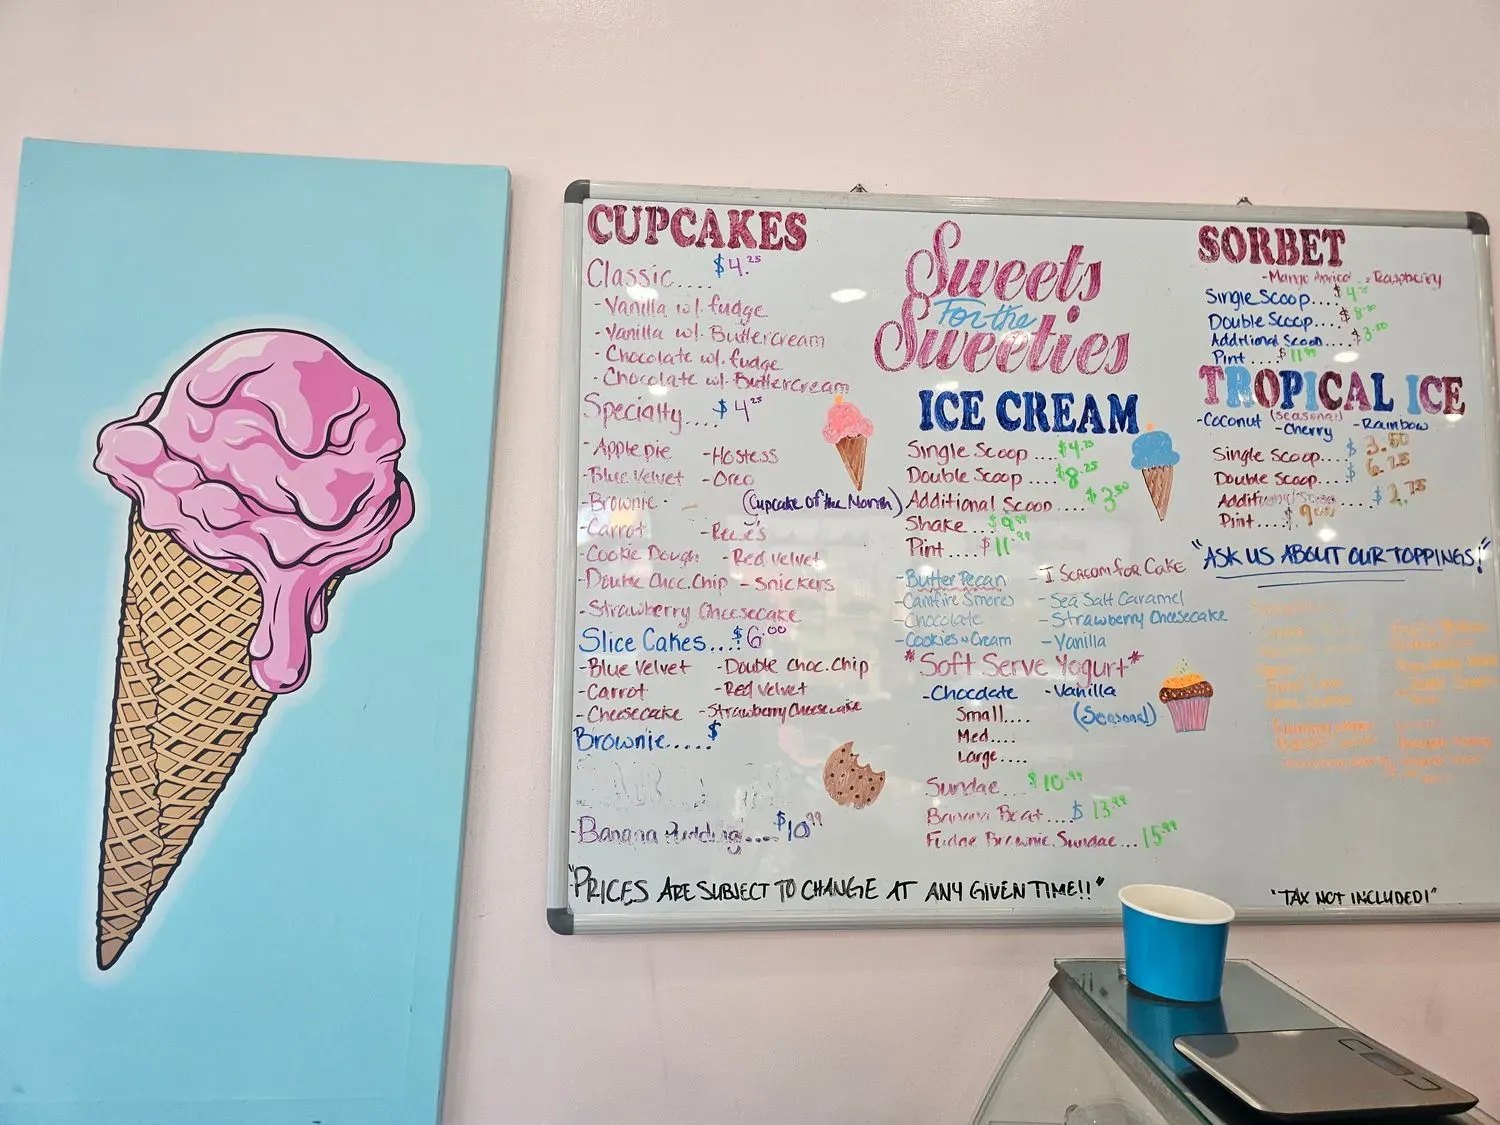 CUPCAKES
Classic.... $4.25
-Vanilla w/. fudge
-Vanilla w/. Buttercream
-Chocolate w/. fudge
-Chocolate w/. Buttercream
Specialty.... $4.25
-Apple pie -Hostess
-Blue Velvet -Oreo
-Brownie (Cupcake of the Month)
-Carrot -Reese's
-Cookie Dough -Red Velvet
-Double Choc. Chip -Snickers
-Strawberry Cheesecake
Slice Cakes...$6.00
-Blue Velvet -Double Choc. Chip
-Carrot -Red Velvet
-Cheesecake -Strawberry Cheesecake
Brownie.....$
-Banana Pudding....$10.99
Sweets
For the
Sweeties
ICE CREAM
Single Scoop ....$4.75
Double Scoop ....$8.25
Additional Scoop ....$3.50
Shake ...$9.99
Pint ....$11.99
-Butter Pecan -I Scream for Cake
-Campfire Smores -Sea Salt Caramel
-Chocolate -Strawberry Cheesecake
-Cookies n Cream -Vanilla
*Soft Serve Yogurt*
-Chocolate -Vanilla
Small.... (Seasonal)
Med....
Large....
Sundae ...$10.99
Banana Boat....$13.99
Fudge Brownie Sundae...15.99
SORBET
-Mango -Raspberry
Single Scoop....$4
Double Scoop....$8
Additional Scoop....$3.50
Pint ....$11.99
TROPICAL ICE
(seasonal)
-Coconut -Cherry -Rainbow
Single Scoop....$3.50
Double Scoop....$6.25
Additional Scoop ....$2.75
Pint....$9
"ASK US ABOUT OUR TOPPINGS!"
"PRICES ARE SUBJECT TO CHANGE AT ANY GIVEN TIME!!"
"TAX NOT INCLUDED!"